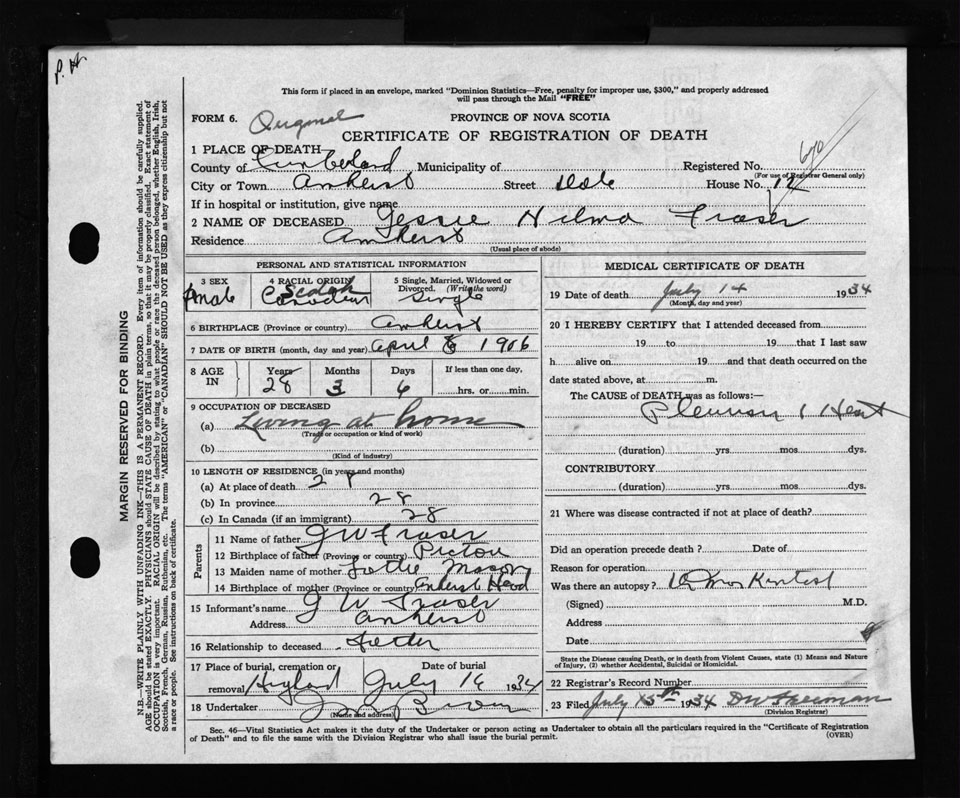 P. H.
This form if placed in an envelope, marked "Dominion Statistics—Free, penalty for improper use, $300," and properly addressed
will pass through the Mail "FREE"
FORM 6. Original PROVINCE OF NOVA SCOTIA
CERTIFICATE OF REGISTRATION OF DEATH
1 PLACE OF DEATH
County of Cumberland Municipality of Registered No. 670
(For use of Registrar General only)
City or Town Amherst Street Dale House No. 12
If in hospital or institution, give name
2 NAME OF DECEASED Jessie Hilma Fraser
Residence Amherst
(Usual place of abode)
PERSONAL AND STATISTICAL INFORMATION
3 SEX 4 RACIAL ORIGIN 5 Single, Married, Widowed or
Divorced. (Write the word)
Scotch
Canadian Single
6 BIRTHPLACE (Province or country) Amherst
7 DATE OF BIRTH (month, day and year) April 8 1906
8 AGE IN Years Months Days If less than one day,
28 3 6 hrs. or min.
9 OCCUPATION OF DECEASED
(a) Living at home
(Trade or occupation or kind of work)
(b)
(Kind of industry)
10 LENGTH OF RESIDENCE (in years and months)
(a) At place of death 28
(b) In province 28
(c) In Canada (if an immigrant) 28
Parents
11 Name of father J W Fraser
12 Birthplace of father (Province or country) Pictou
13 Maiden name of mother Lottie Mason
14 Birthplace of mother (Province or country) Amherst Head
15 Informant's name J W Fraser
Address Amherst
16 Relationship to deceased Father
17 Place of burial, cremation or Date of burial
removal Highland July 16 1934
18 Undertaker Brown
(Name and address)
MEDICAL CERTIFICATE OF DEATH
19 Date of death July 14 1934
(Month, day and year)
20 I HEREBY CERTIFY that I attended deceased from
19 to 19 that I last saw
h alive on 19 and that death occurred on the
date stated above, at m.
The CAUSE of DEATH was as follows:—
Pleurisy & Heart
(duration) yrs mos dys.
CONTRIBUTORY
(duration) yrs mos dys.
21 Where was disease contracted if not at place of death?
Did an operation precede death? Date of
Reason for operation
Was there an autopsy?
(Signed) M.D.
Address
Date
State the Disease causing Death, or in death from Violent Causes, state (1) Means and Nature
of Injury, (2) whether Accidental, Suicidal or Homicidal.
22 Registrar's Record Number
23 Filed July 15th 1934
(Division Registrar)
Sec. 46—Vital Statistics Act makes it duty of the Undertaker or person acting as Undertaker to obtain all the particulars required in the "Certificate of Registration
of Death" and to file the same with the Division Registrar who shall issue the burial permit.
(OVER)
MARGIN RESERVED FOR BINDING
N.B.—WRITE PLAINLY WITH UNFADING INK—THIS IS A PERMANENT RECORD. Every item of information should be carefully supplied.
AGE should be stated EXACTLY. PHYSICIANS should STATE CAUSE OF DEATH in plain terms, so that it may be properly classified. Exact statement of
OCCUPATION is very important. RACIAL ORIGIN will be described by stating to what people or race the deceased person belonged, whether English, Irish,
Scottish, French, German, Russian, Ruthenian, etc. The terms "AMERICAN" or "CANADIAN" SHOULD NOT BE USED as they express citizenship but not
a race or people. See instructions on back of certificate.